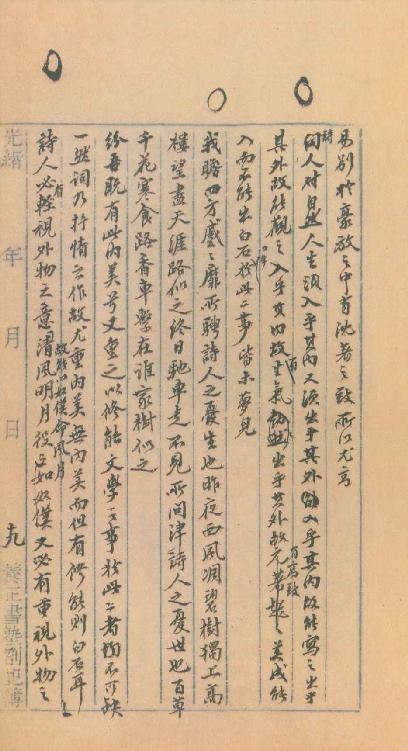 易別於豪放之中有沈著之致所以尤高
詩人對自然人生須入乎其內又須出乎其外入乎其內故能寫之出乎
其外故能觀之入乎其內故有生氣出乎其外故有高致元著超之美成能
入而不能出白石以降於此二事皆未夢見
我瞻四方蹙〻靡所騁詩人之憂生也昨夜西風凋碧樹獨上高
樓望盡天涯路似之終日馳車走不見所問津詩人之憂世也百草
千花寒食路香車繫在誰家樹似之
紛吾既有此內美兮又重之以修能文學之事於此二者不可缺
一然詞乃抒情之作故尤重內美無內美而但有修能則白石耳
詩人必有輕視外物之意故能以奴僕命風月清風明月役之如奴僕又必有重視外物之
光緒 年 月 日 九 養正書塾劄記簿